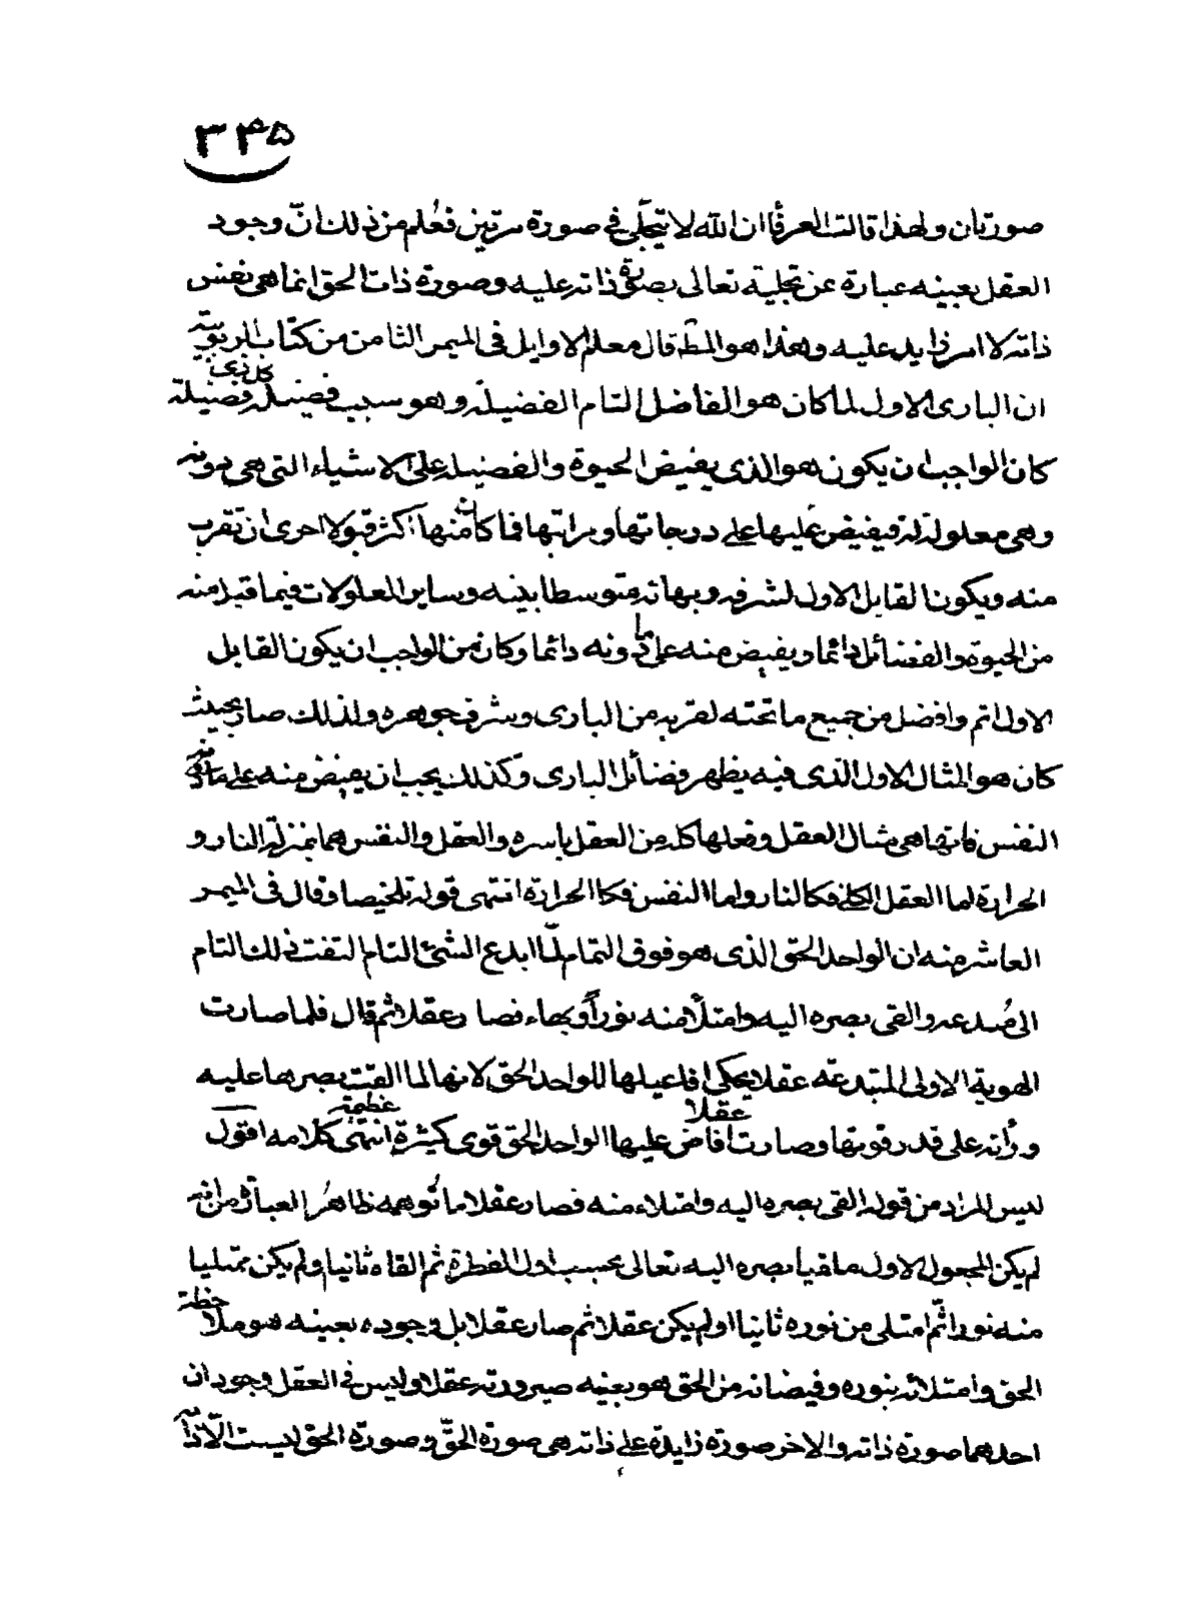 ٣٤٥
صورتان ولهذا قالت العرفا ان الله لا يتجلّى في صورة مرتين فعُلم من ذلك انّ وجود
العقل بعينه عبارة عن تجلية تعالى بصورة ذاته عليه وصورة ذات الحق انما هى نفس
ذاته لا امر زايد عليه وهذا هو المط قال معلم الاوايل فى الميمر الثامن من كتاب الربوبية
ان البارى الاول لما كان هو الفاضل التام الفضيلة وهو سبب فضيلة كل ذى فضيلة
كان الواجب ان يكون هو الذى يفيض الحيوة والفضيله على الاشياء التى هى دونه
وهى معلولة له فيفيض عليها على درجاتها ومراتبها فما كان منها اكثر قبولا احرى ان تقرب
منه ويكون القابل الاول لشرفه وبهائه متوسطا بينه وساير المعلولات فيما قبل منه
من الحيوة والفضائل دائما ويفيض منه على ما دونه دائما وكان من الواجب ان يكون القابل
الاول اتم وافضل من جميع ما تحته لقربه من البارى وشرف جوهره ولذلك صار بحيث
كان هو المثال الاول الذى فيه يظهر فضائل البارى وكذلك يجب ان يفيض منه على ما دونه من
النفس فانها هى مثال العقل وفعلها كله من العقل باسره والعقل والنفس هما بمنزلة النار و
الحرارة اما العقل الكلى فكالنار واما النفس فكا الحرارة انتهى قوله تلخيصا وقال فى الميمر
العاشر منه ان الواحد الحق الذى هو فوق التمام لمّا ابدع الشئ التام التفت ذلك التام
الى مُبدعه والقى بصره اليه وامتلأ منه نوراً وبهاء فصار عقلا ثم قال فلما صارت
الهوية الاولى المبتدعة عقلا يحكى افاعيلها للواحد الحق لانها لما القت بصرها عليه
ورأته على قدر قوتها وصارت عقلا افاض عليها الواحد الحق قوى كثيرة عظيمة انتهى كلامه اقول
ليس المراد من قوله القى بصره اليه وامتلاء منه فصار عقلا ما تُوهمه ظاهرُ العبارة من انه
لم يكن المجعول الاول ملقيا بصره اليه تعالى بحسب اول الفطرة ثم القاه ثانيا ولم يكن ممتليا
منه نورا ثم امتلى من نوره ثانيا او لم يكن عقلا ثم صار عقلا بل وجوده بعينه هو ملاحظة
الحق وامتلائه بنوره وفيضانه من الحق هو بعينه صيرورته عقلا وليس فى العقل وجودان
احدهما صورة ذاته والاخر صورة زايدة على ذاته هى صورة الحقّ وصورة الحق ليست الّا ذاته